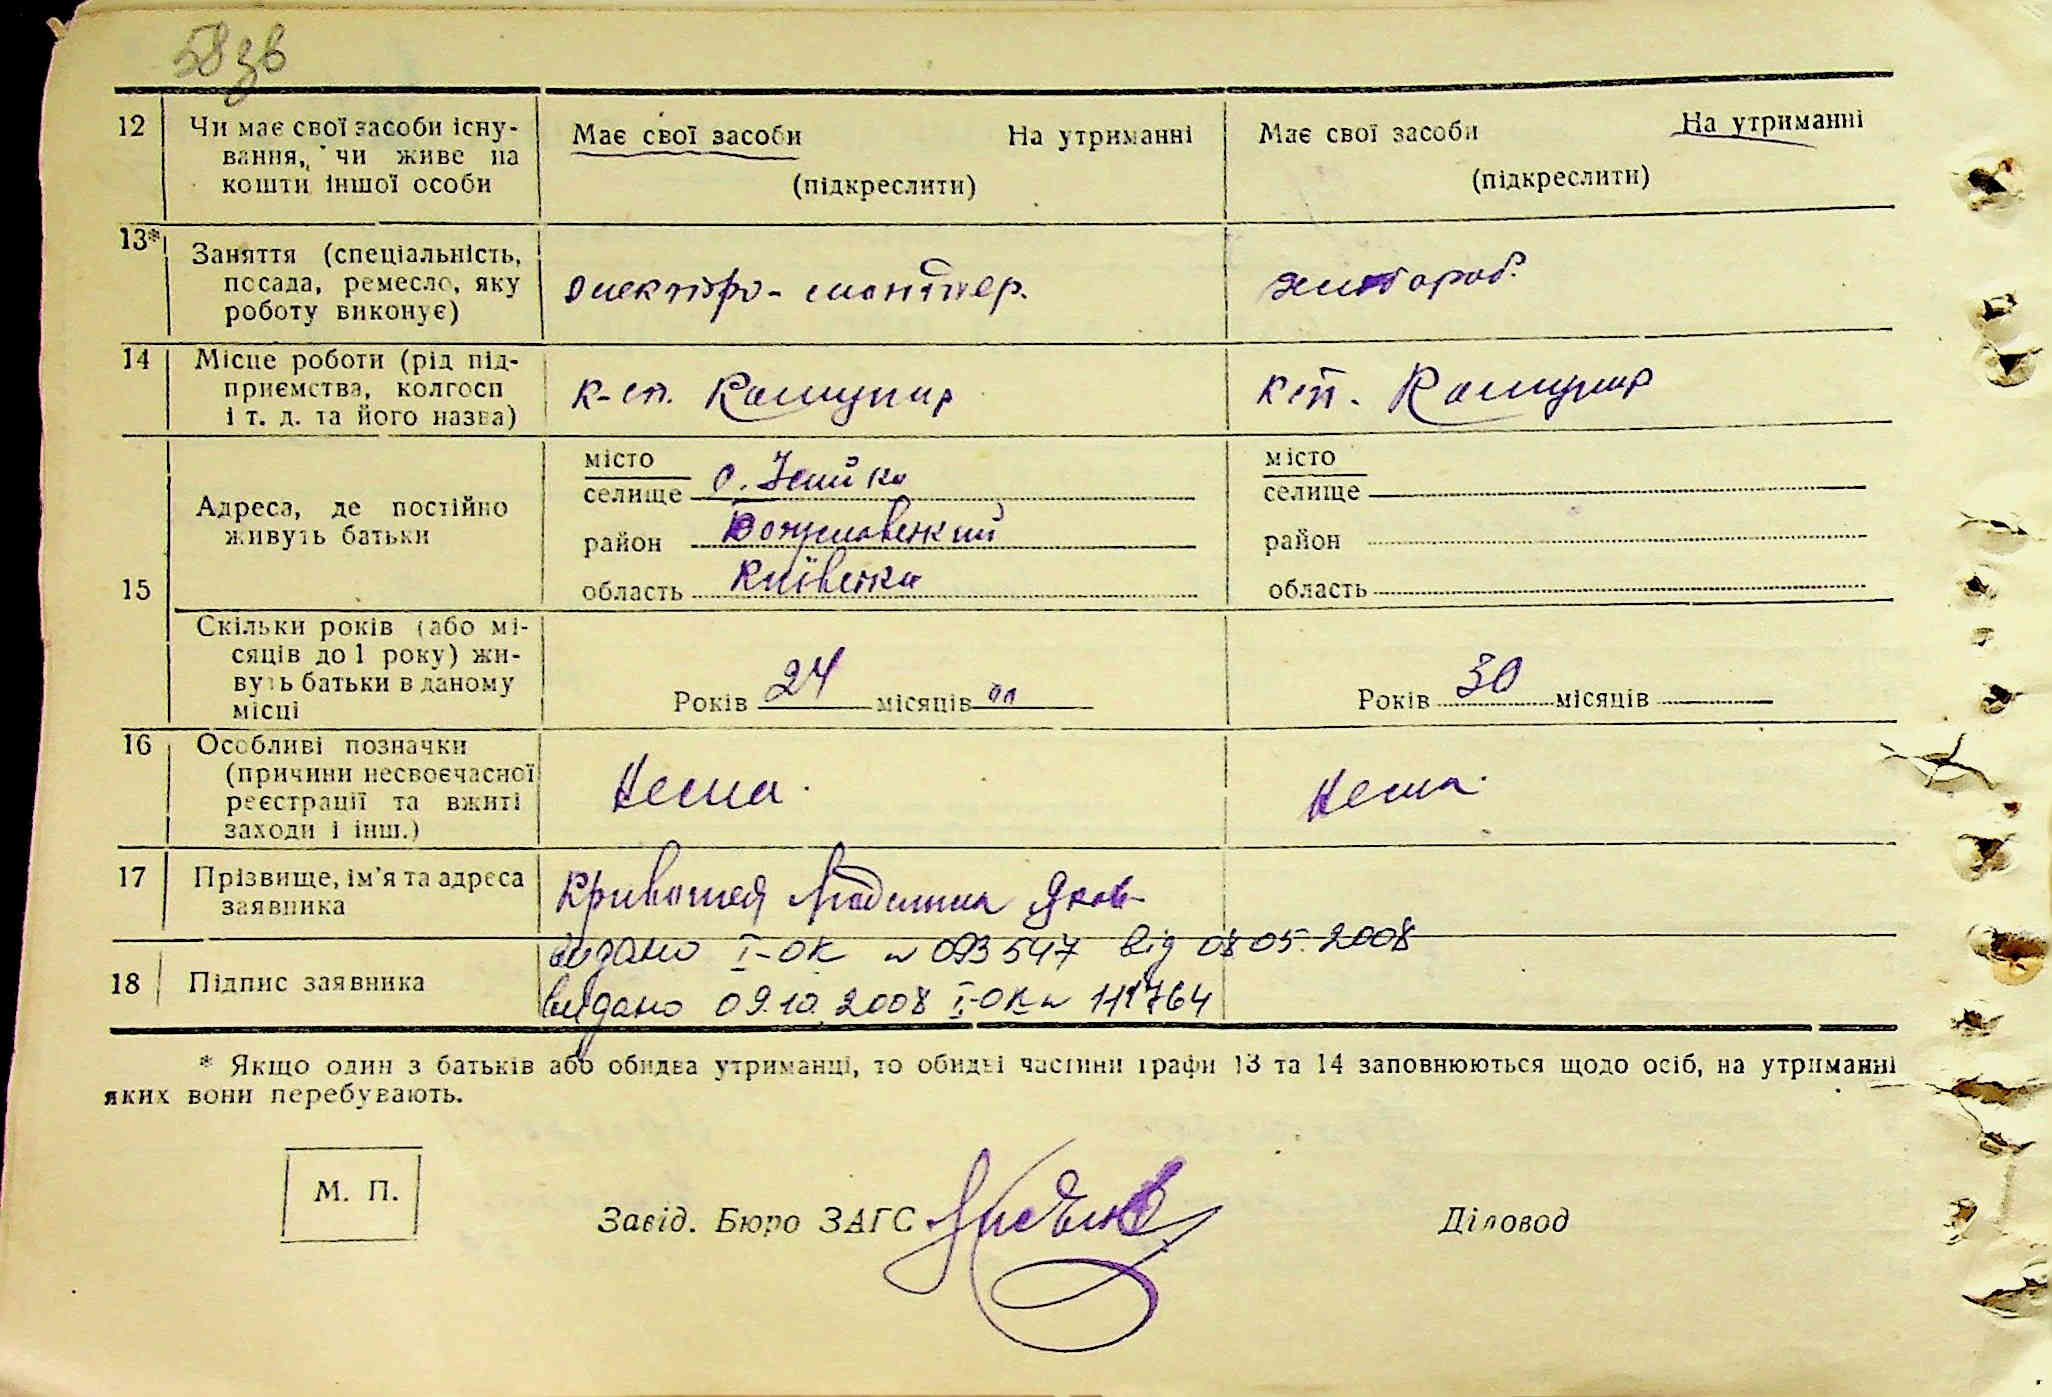 58 зв
12 Чи має свої засоби існу- Має свої засоби На утриманні Має свої засоби На утриманні
вання, чи живе на
кошти іншої особи (підкреслити) (підкреслити)
13* Заняття (спеціальність,
посада, ремесло, яку електро-монтер.
роботу виконує)
14 Місце роботи (рід під-
приємства, колгосп к-сп. Комунар ксп. Комунар
і т. д. та його назва)
місто місто
селище с. селище
15 Адреса, де постійно
живуть батьки район район
область Київська область
Скільки років (або мі-
сяців до 1 року) жи-
вуть батьки в даному Років 24 місяців Років 30 місяців
місці
16 Особливі позначки
(причини несвоєчасної Нема. Нема.
реєстрації та вжиті
заходи і інш.)
17 Прізвище, ім'я та адреса Кривошея Яков
заявника
видано І-ОК № 093547 від 08 05. 2008
18 Підпис заявника
видано 09.10.2008 І-ОК № 111764
* Якщо один з батьків або обидва утриманці, то обидві частини графи 13 та 14 заповнюються щодо осіб, на утриманні
яких вони перебувають.
М. П.
Завід. Бюро ЗАГС Діловод